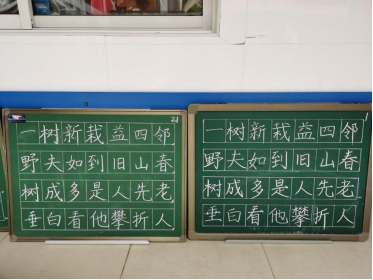 21
一树新栽益四邻
野夫如到旧山春
树成多是人先老
垂白看他攀折人
1
一树新栽益四邻
野夫如到旧山春
树成多是人先老
垂白看他攀折人